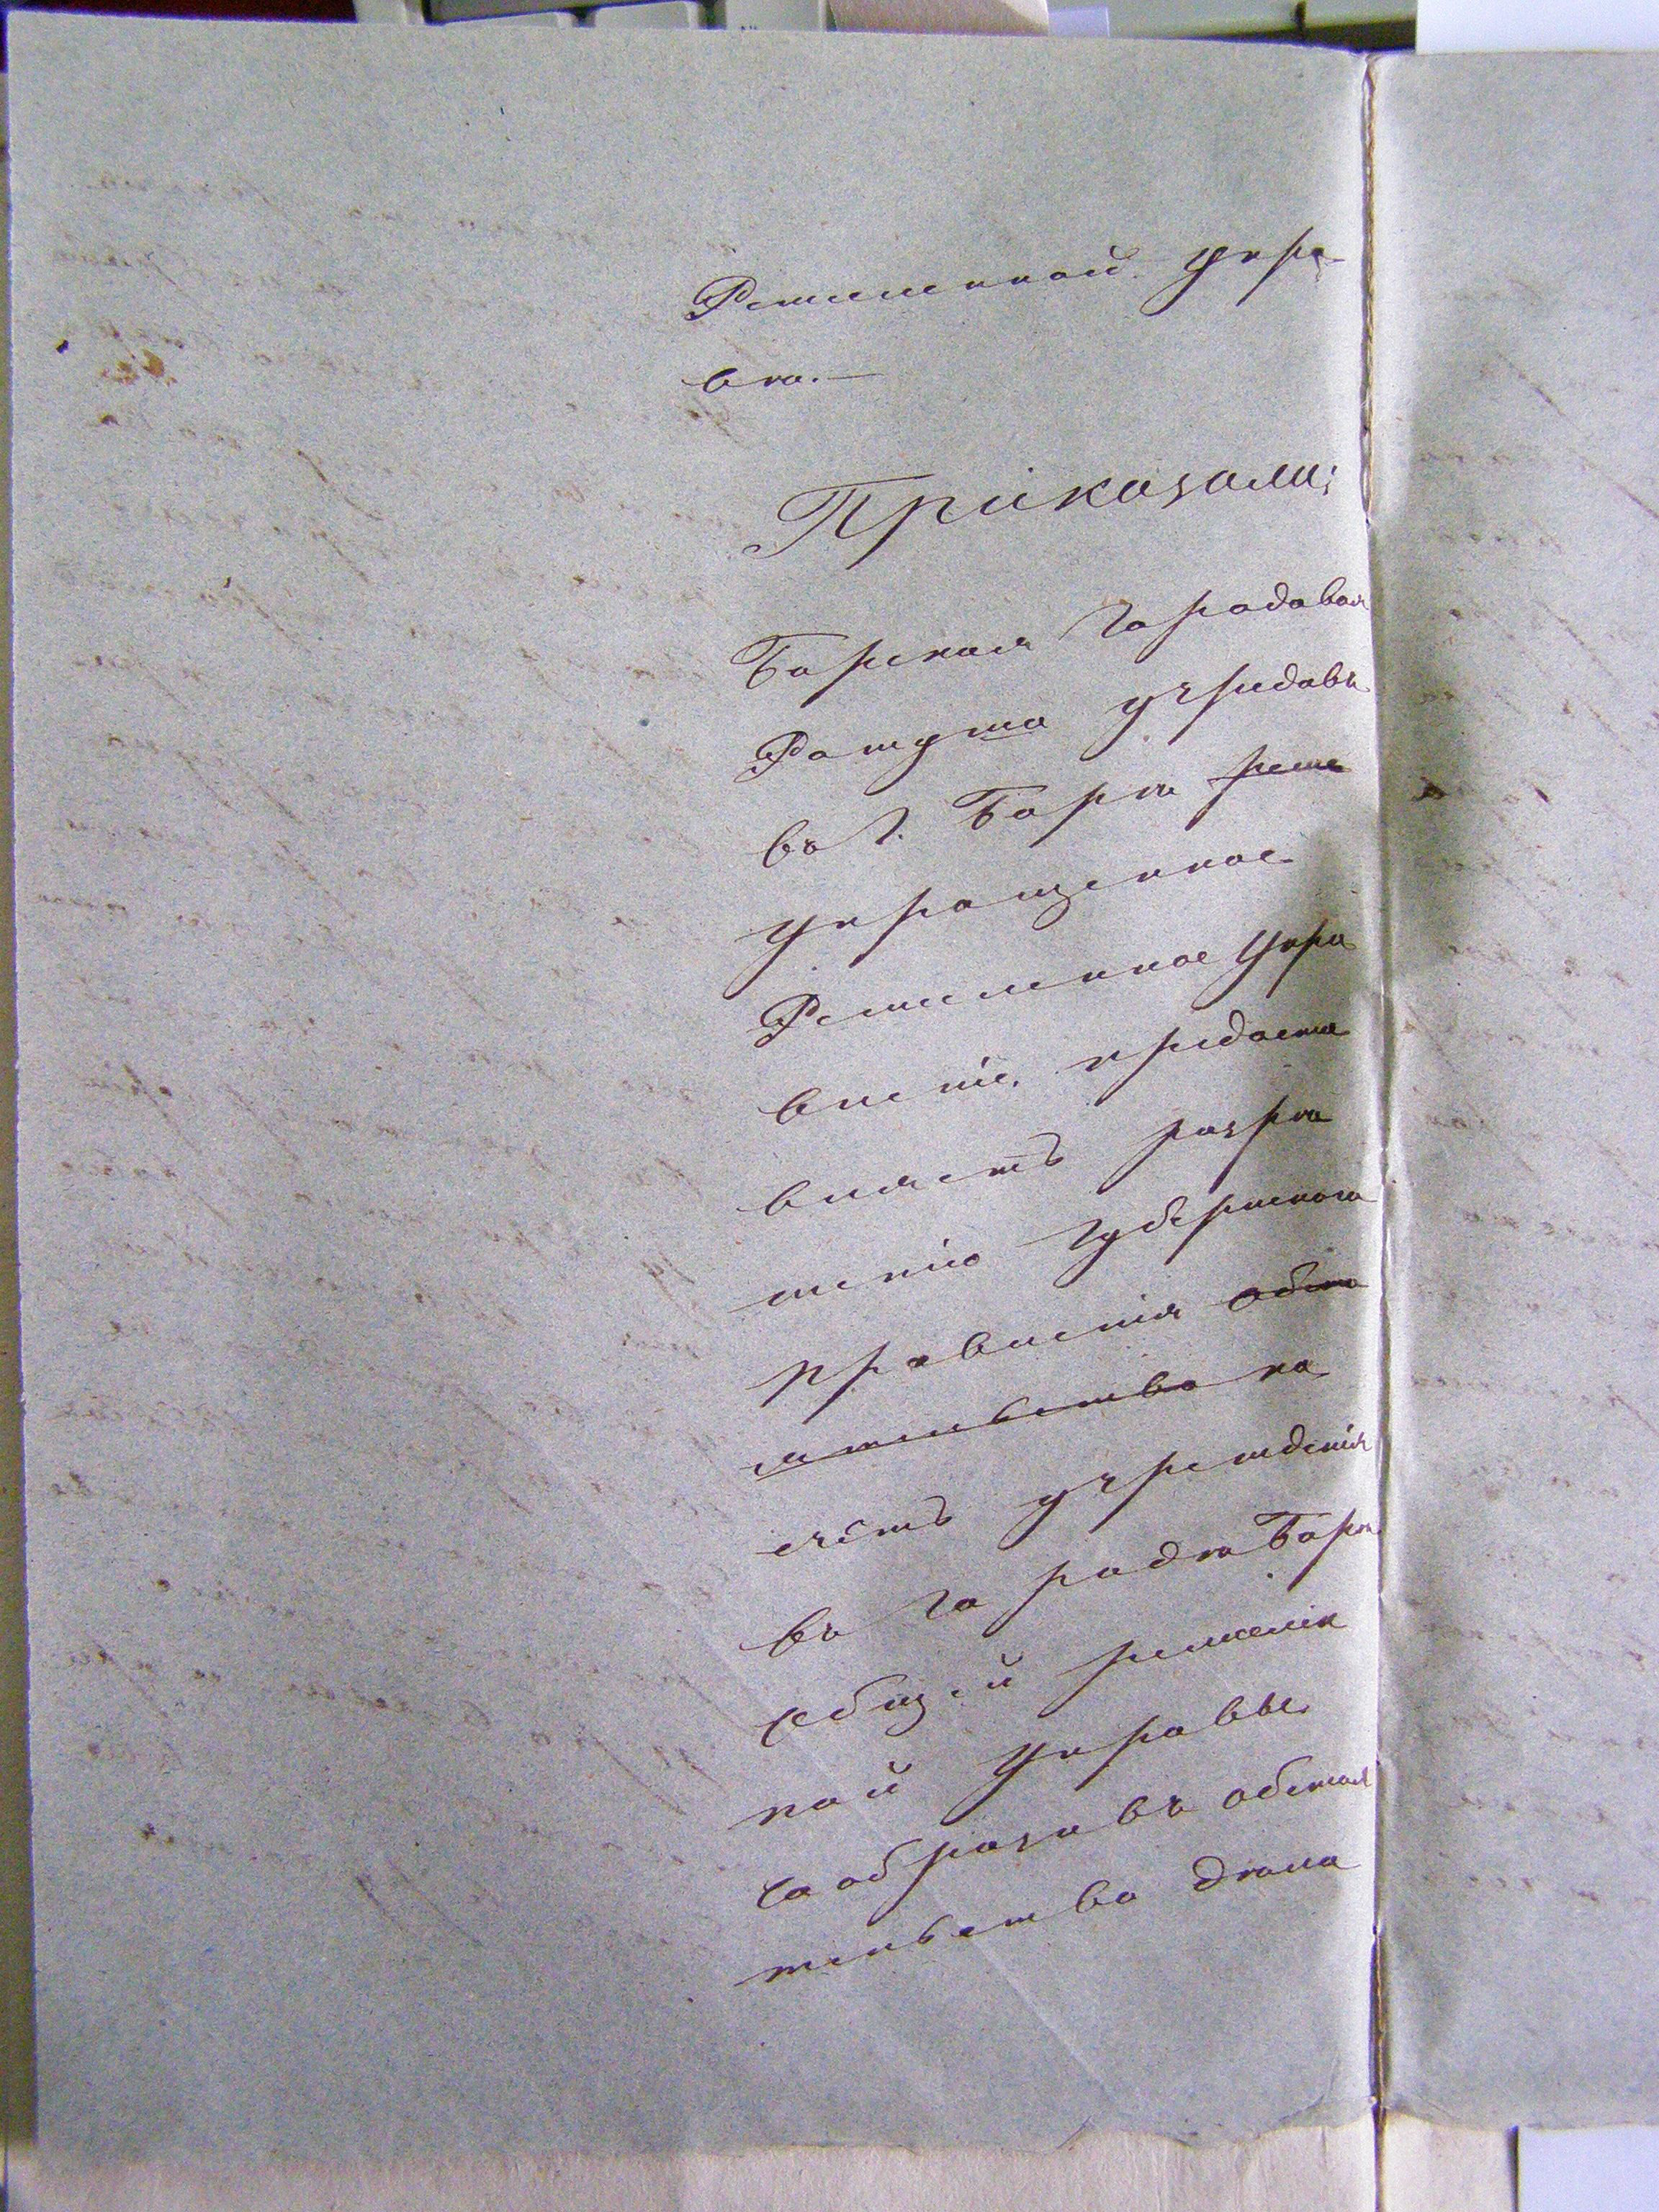 Ремеленной Упра
вѣ.—
Приказали:
Барская Городовая
Ратуша учредивъ
въ г. Барѣ реме
упрощенное
Ремесленное Упра
вленіе, предоста
вляетъ разрѣ
шенію Губернского
правленія обсто
ятельство на
счетъ учрежденія
въ городѣ Барѣ
общей ремеслен
ной Управы
сообразивъ обстоя
тельство дѣла